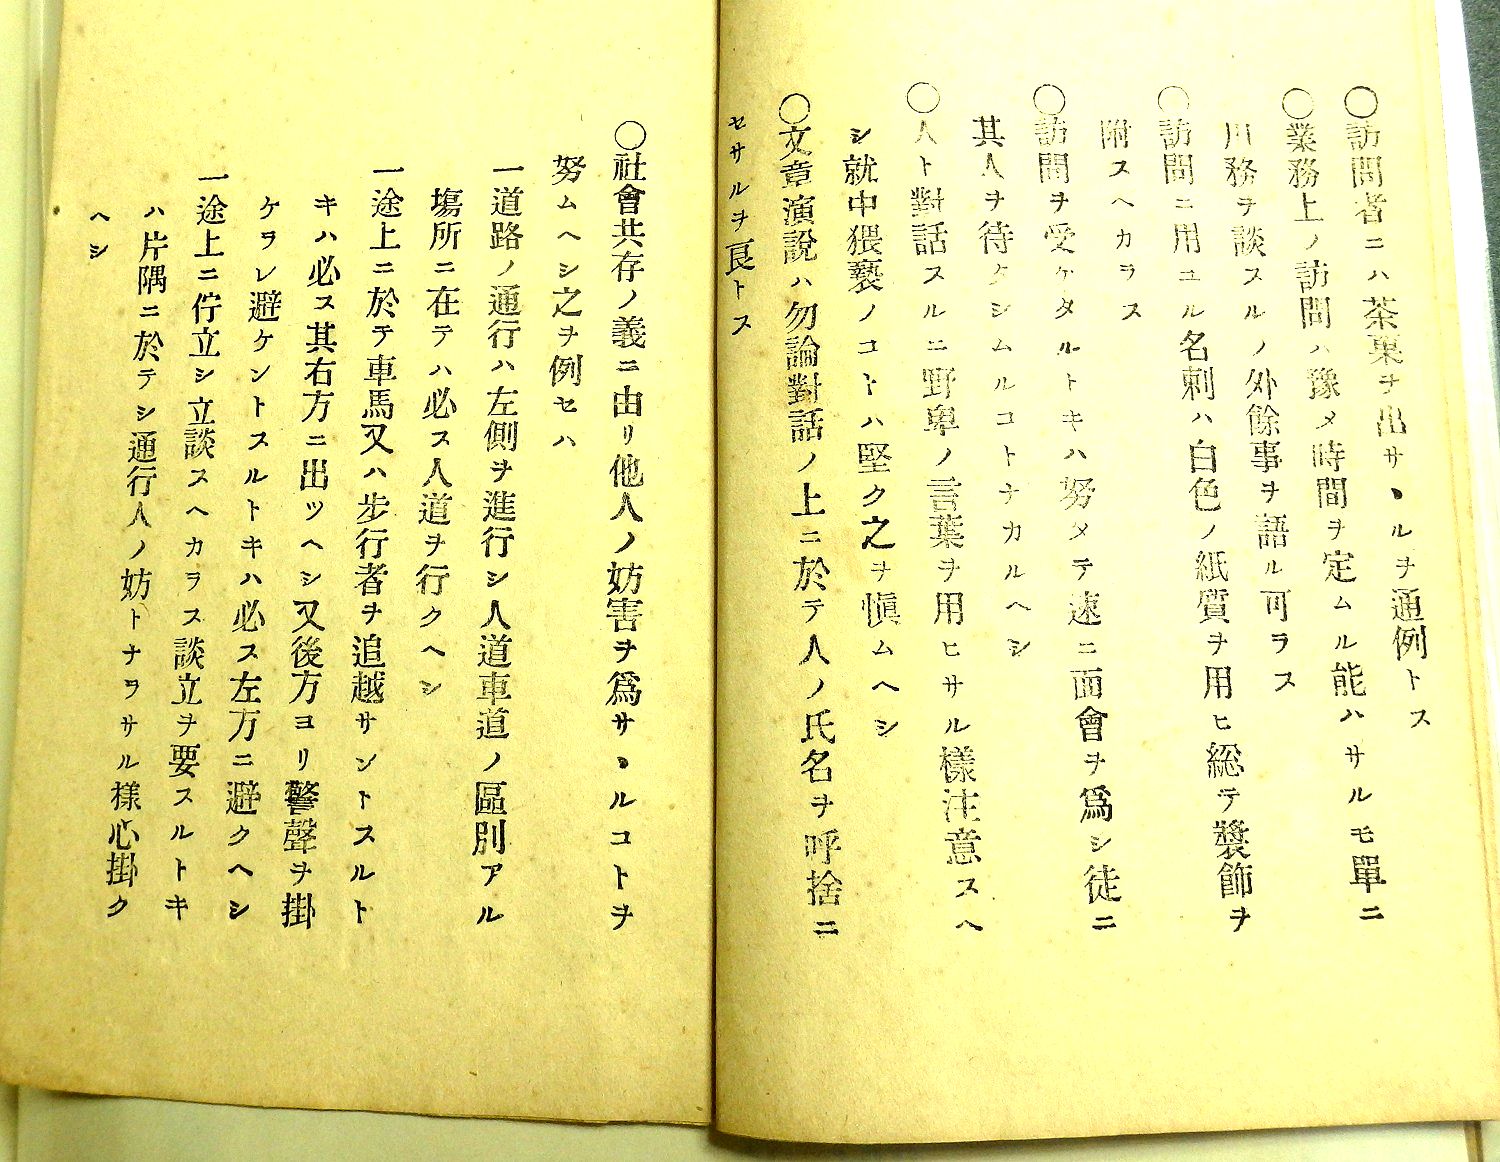 〇訪問者ニハ茶菓ヲ出サヽルヲ通例トス
〇業務上ノ訪問ハ豫メ時間ヲ定ムル能ハサルモ單ニ
用務ヲ談スルノ外餘事ヲ語ル可ラス
〇訪問ニ用ユル名刺ハ白色ノ紙質ヲ用ヒ総テ奬飾ヲ
附スヘカラス
〇訪問ヲ受ケタルトキハ努メテ速ニ面會ヲ爲シ徒ニ
其人ヲ待タシムルコトナカルヘシ
〇人ト對話スルニ野卑ノ言葉ヲ用ヒサル樣注意スヘ
シ就中猥褻ノコトハ堅ク之ヲ愼ムヘシ
〇文章演説ハ勿論對話ノ上ニ於テ人ノ氏名ヲ呼捨ニ
セサルヲ良トス
〇社會共存ノ義ニ由リ他人ノ妨害ヲ爲サヽルコトヲ
努ムヘシ之ヲ例セハ
一道路ノ通行ハ左側ヲ進行シ人道車道ノ區別アル
塲所ニ在テハ必ス人道ヲ行クヘシ
一途上ニ於テ車馬又ハ步行者ヲ追越サントスルト
キハ必ス其右方ニ出ツヘシ又後方ヨリ警聲ヲ掛
ケラレ避ケントスルトキハ必ス左方ニ避クヘシ
一途上ニ佇立シ立談スヘカラス談立ヲ要スルトキ
ハ片隅ニ於テシ通行人ノ妨トナラサル樣心掛ク
ヘシ